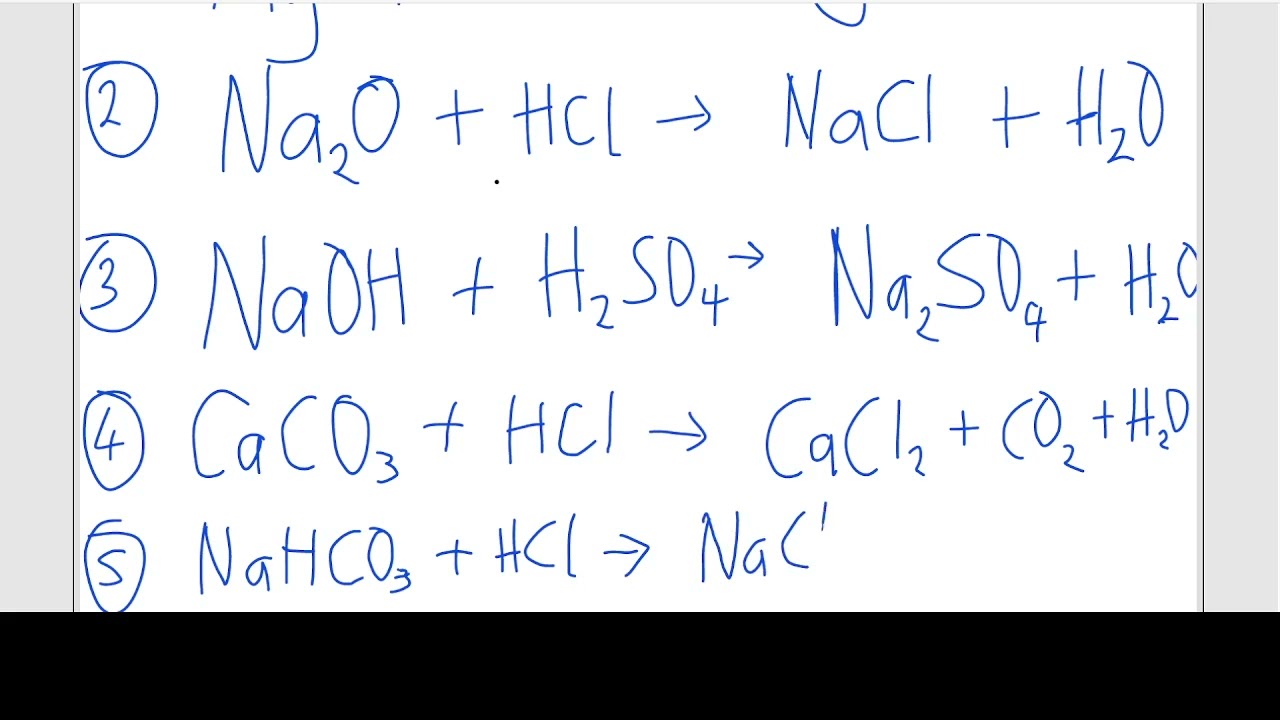 ② Na₂O + HCl → NaCl + H₂O
③ NaOH + H₂SO₄ → Na₂SO₄ + H₂O
④ CaCO₃ + HCl → CaCl₂ + CO₂ + H₂O
⑤ NaHCO₃ + HCl → NaC'